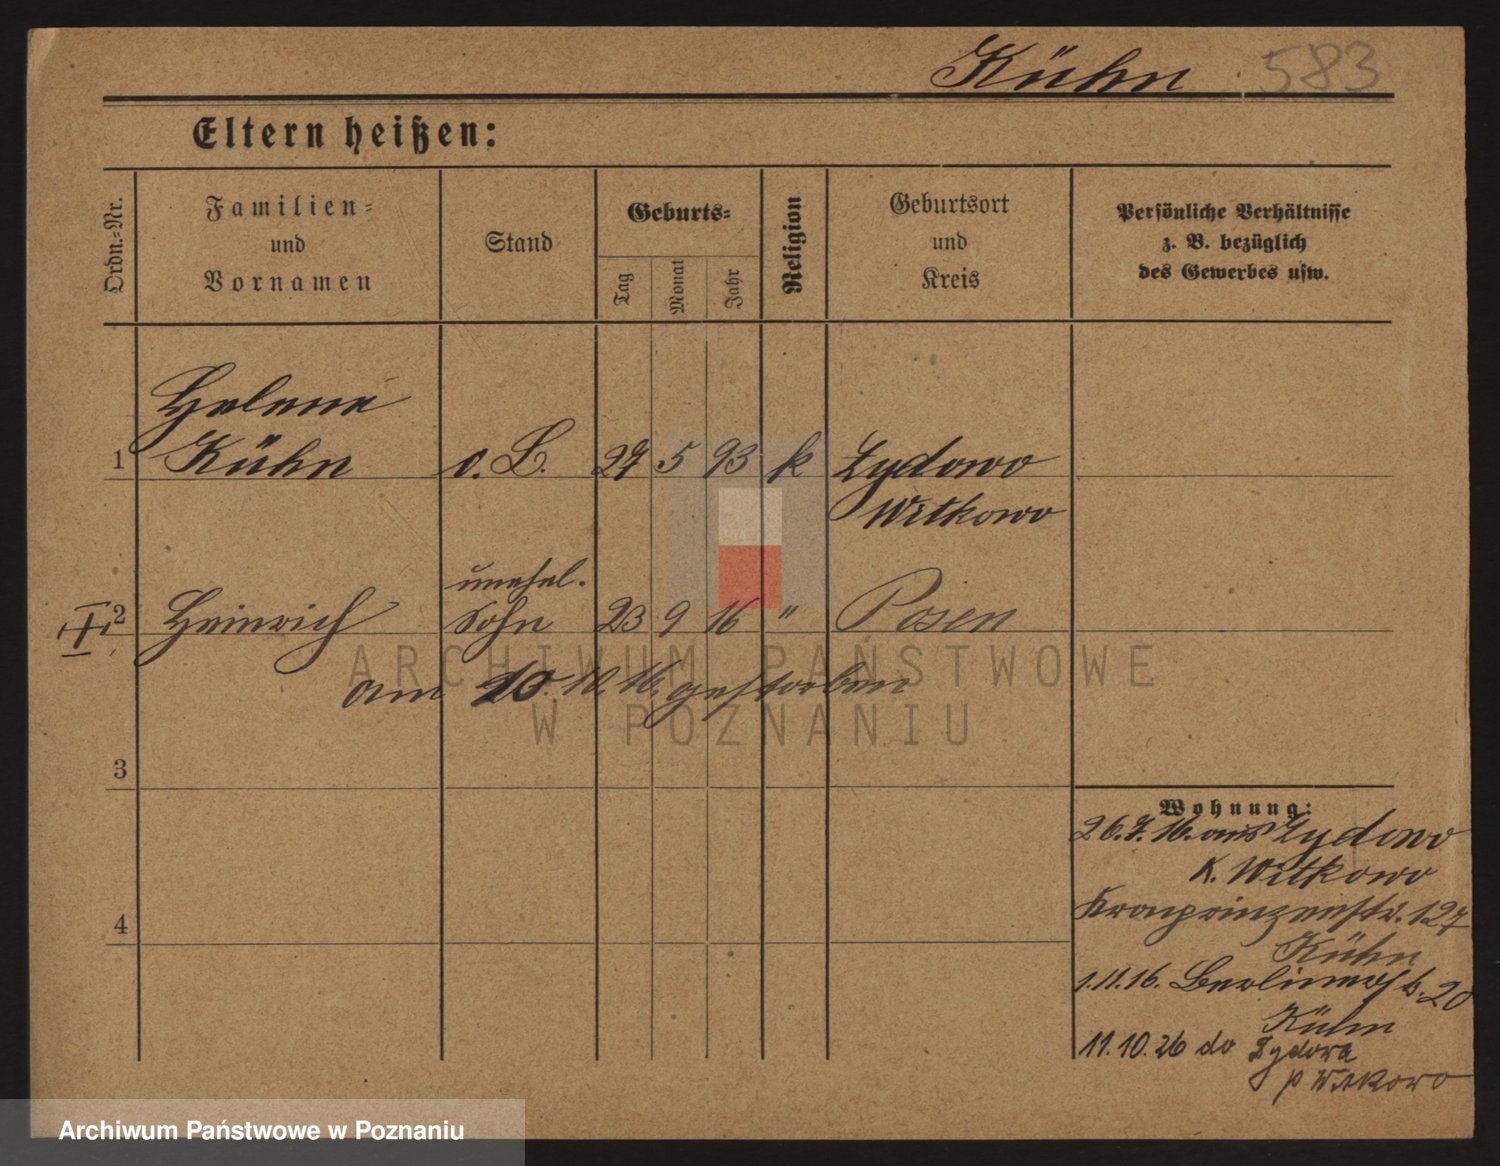 Kühn 583
Eltern heißen:
Ordn.-Nr.
Familien-
und
Vornamen
Stand
Geburts-
Tag
Monat
Jahr
Religion
Geburtsort
und
Kreis
Persönliche Verhältnisse
z. B. bezüglich
des Gewerbes usw.
Helene
1 Kühn o. B. 27 5 93 k Zydowo
Witkowo
unehel.
2 Heinrich Sohn 23 9 16 " Posen
am 10.10.16. gestorben
3
Wohnung:
26.7.16. aus Zydowo
K. Witkowo
4
Kronprinzenstr. 127
Kühn
1.11.16. Berlinerstr. 20
Kühn
11.10.26 do Zydowa
p Witkowo
ARCHIWUM PAŃSTWOWE
W POZNANIU
Archiwum Państwowe w Poznaniu